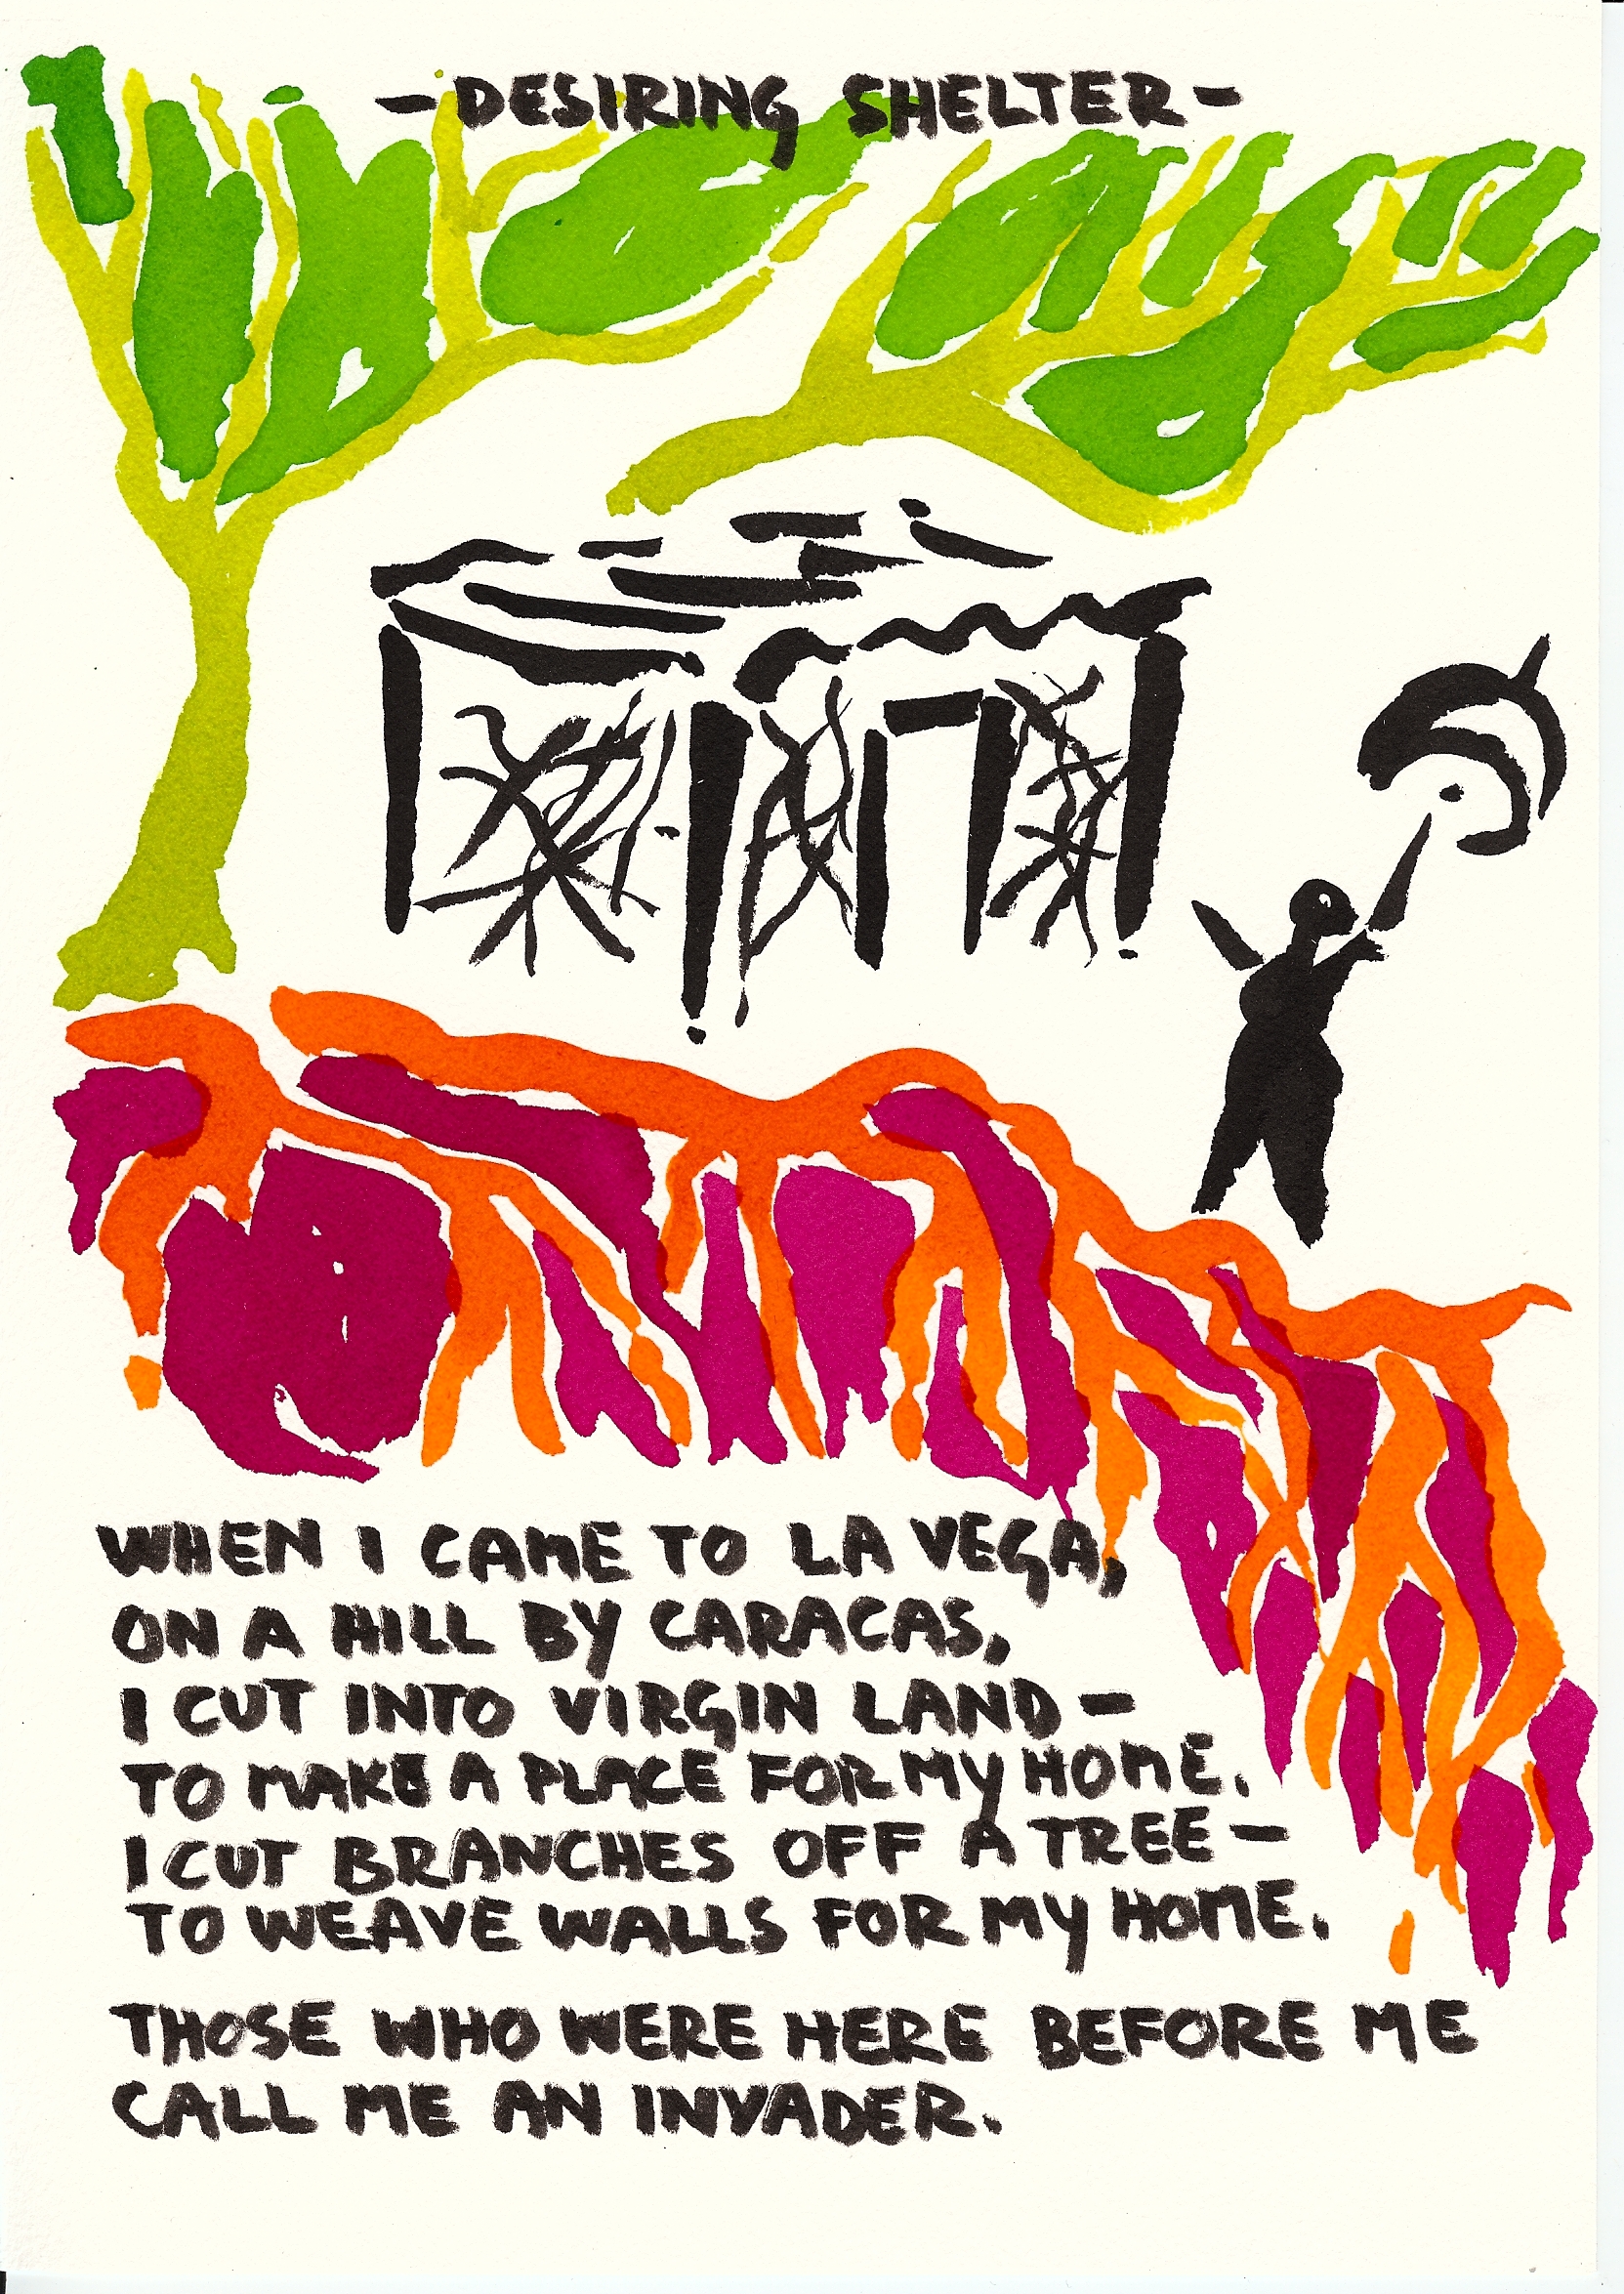 -DESIRING SHELTER-
WHEN I CAME TO LA VEGA,
ON A HILL BY CARACAS,
I CUT INTO VIRGIN LAND -
TO MAKE A PLACE FOR MY HOME.
I CUT BRANCHES OFF A TREE -
TO WEAVE WALLS FOR MY HOME.
THOSE WHO WERE HERE BEFORE ME
CALL ME AN INVADER.